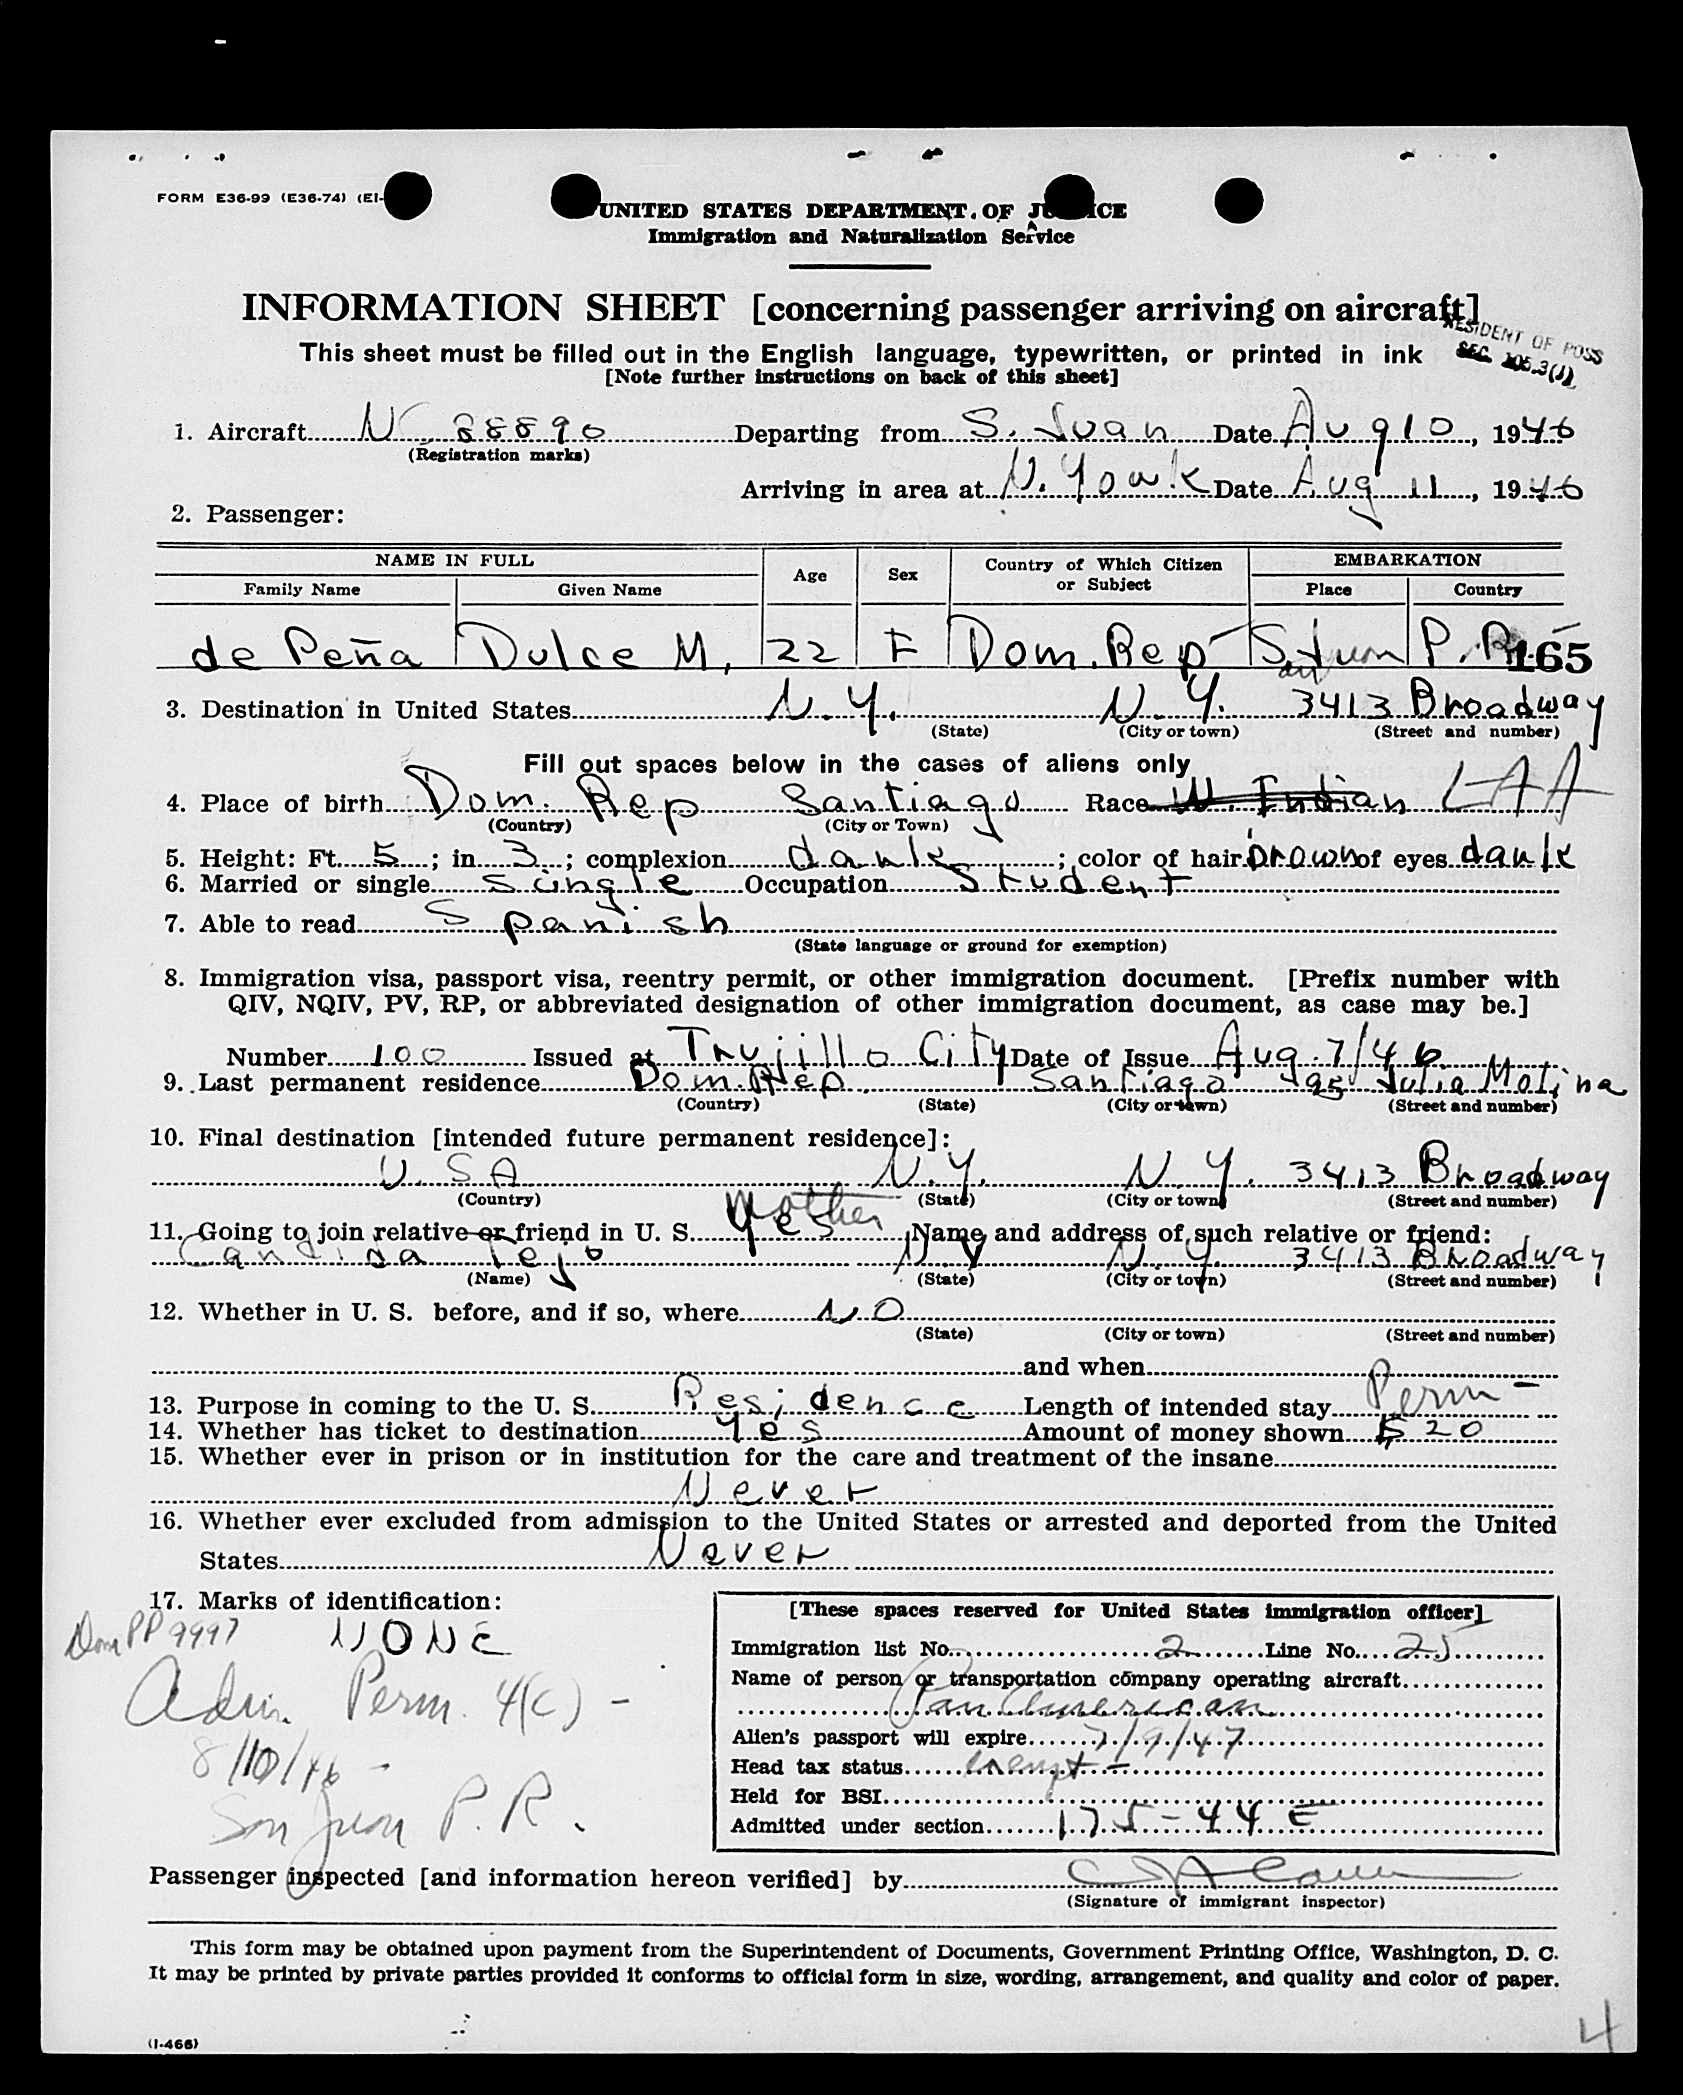 FORM E36-99 (E36-74) (EI-
UNITED STATES DEPARTMENT OF JUSTICE
Immigration and Naturalization Service
INFORMATION SHEET [concerning passenger arriving on aircraft]
RESIDENT OF POSS
SEC. 105.3(J)
This sheet must be filled out in the English language, typewritten, or printed in ink
[Note further instructions on back of this sheet]
1. Aircraft NC 88890 Departing from S. Juan Date Aug 10, 1946
(Registration marks)
Arriving in area at N. York Date Aug 11, 1946
2. Passenger:
NAME IN FULL Age Sex Country of Which Citizen or Subject EMBARKATION
Family Name Given Name Place Country
de Peña Dulce M, 22 F Dom. Rep San Juan P.R. 165
3. Destination in United States N.Y. N.Y. 3413 Broadway
(State) (City or town) (Street and number)
Fill out spaces below in the cases of aliens only
4. Place of birth Dom. Rep Santiago Race W. Indian LAA
(Country) (City or Town)
5. Height: Ft. 5; in. 3; complexion dark; color of hair brown of eyes dark
6. Married or single single Occupation Student
7. Able to read Spanish
(State language or ground for exemption)
8. Immigration visa, passport visa, reentry permit, or other immigration document. [Prefix number with
QIV, NQIV, PV, RP, or abbreviated designation of other immigration document, as case may be.]
Number 100 Issued at Trujillo City Date of Issue Aug. 7/46
9. Last permanent residence Dom. Rep Santiago Julia Molina
(Country) (State) (City or town) (Street and number)
10. Final destination [intended future permanent residence]:
U.S.A N.Y. N.Y. 3413 Broadway
(Country) (State) (City or town) (Street and number)
Mother
11. Going to join relative or friend in U. S. Yes Name and address of such relative or friend:
Candida Tejo N Y N.Y. 3413 Broadway
(Name) (State) (City or town) (Street and number)
12. Whether in U. S. before, and if so, where NO
(State) (City or town) (Street and number)
and when
13. Purpose in coming to the U. S. Residence Length of intended stay Perm -
14. Whether has ticket to destination Yes Amount of money shown $20
15. Whether ever in prison or in institution for the care and treatment of the insane
Never
16. Whether ever excluded from admission to the United States or arrested and deported from the United
States Never
17. Marks of identification:
Dom PP 9997 NONE
Adm. Perm. 4(c) -
8/10/46 -
San Juan P.R.
[These spaces reserved for United States immigration officer]
Immigration list No. 2 Line No. 25
Name of person or transportation company operating aircraft
Pan American
Alien's passport will expire 7/9/47
Head tax status exempt -
Held for BSI
Admitted under section 175-44 E
Passenger inspected [and information hereon verified] by
(Signature of immigrant inspector)
This form may be obtained upon payment from the Superintendent of Documents, Government Printing Office, Washington, D. C.
It may be printed by private parties provided it conforms to official form in size, wording, arrangement, and quality and color of paper.
(I-466)
4